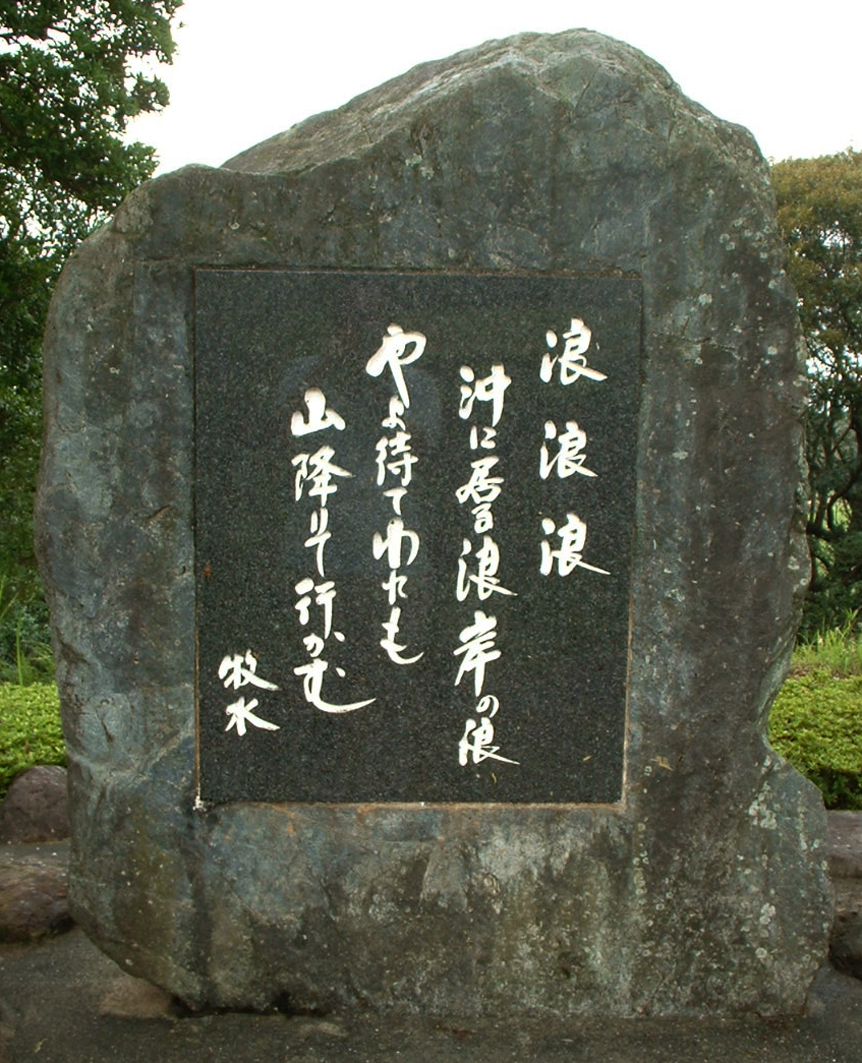 浪 浪 浪
沖に居る浪岸の浪
やよ待てわれも
山降りて行かむ
牧水